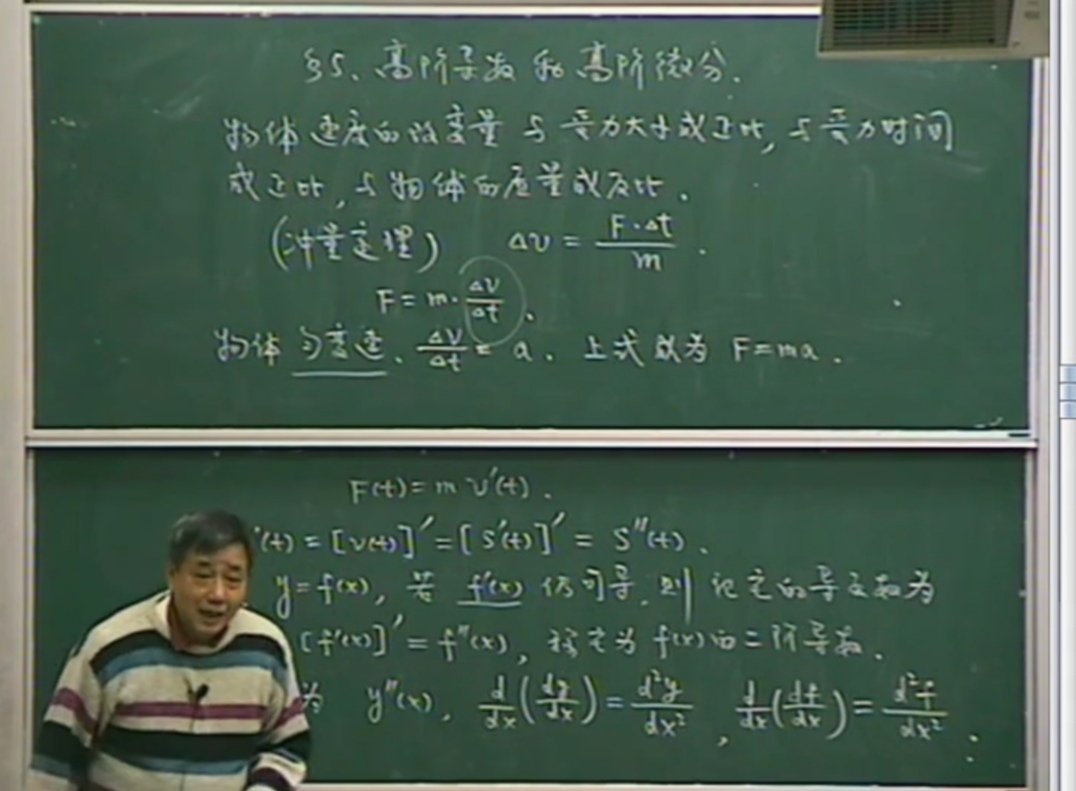 §5、高阶导数和高阶微分.
物体速度的改变量与受力大小成正比,与受力时间
成正比,与物体的质量成反比.
(冲量定理) Δv = F·Δt/m .
F = m·Δv/Δt .
物体匀变速、Δv/Δt = a . 上式成为 F=ma .
F(t)=m v'(t) .
'(t) = [v(t)]' = [S'(t)]' = S''(t) .
y=f(x), 若 f'(x) 仍可导,则记它的导函数为
[f'(x)]' = f''(x), 称它为 f(x) 的二阶导数.
为 y''(x), d/dx(dy/dx) = d²y/dx² , d/dx(df/dx) = d²f/dx² .